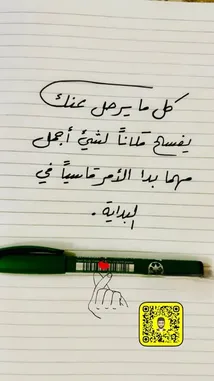 كل ما يرحل عنك
يفسح مكاناً لشيء أجمل
مهما بدا الأمر قاسياً في
البداية .